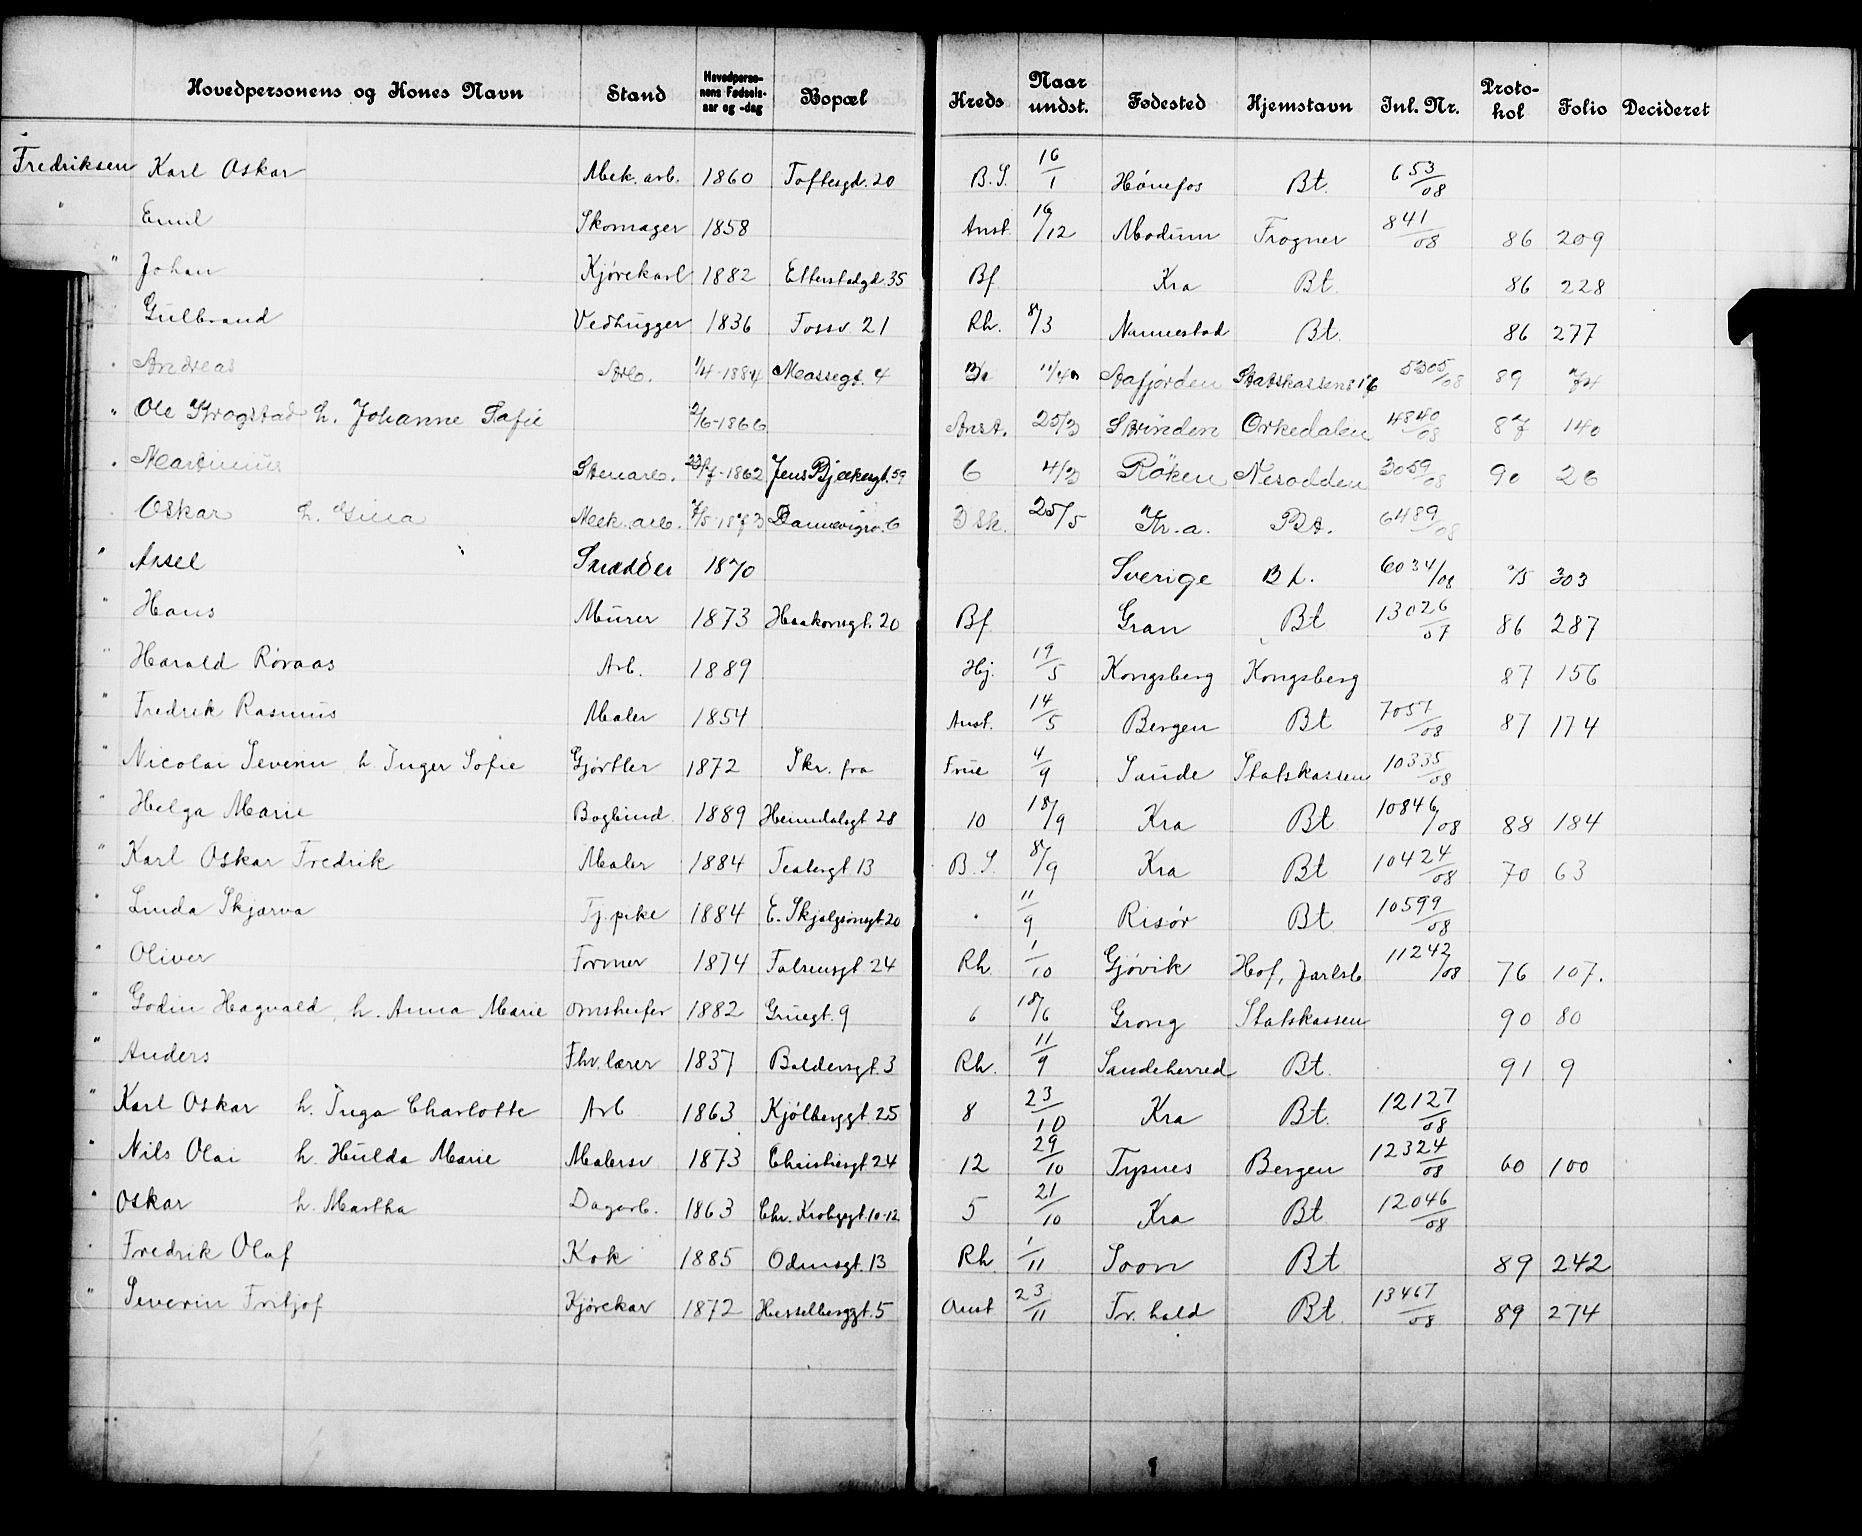 Hovedpersonens og Kones Navn Stand Hovedperso-nens Fødsels-aar og -dag Bopæl Kreds Naar undst. Fødested Hjemstavn Inl. Nr. Proto-kol Folio Decideret
Fredriksen Karl Oskar Mek. arb. 1860 Toftesgd. 20 B.S. 16/1 Hönefos Bt. 653/08
" Emil Skomager 1858 Anst. 16/12 Modum Frogner 841/08 86 209
" Johan Kjørekarl 1882 Etterstadgd. 35 Bf Kra Bt. 86 228
Gulbrand Vedhugger 1836 Fossv. 21 Rh. 8/3 Nannestad Bt. 86 277
" Andreas Arb. 1/4-1884 Mossegt. 4 Aafjorden Statskassen 5305/08 89 74
" Ole Krogstad h. Johanne Sofie 2/6-1866 Anst. 25/3 Strinden Orkedalen 4840/08 87 140
" Martinius Stenarb. 1862 Jens Bjelkesgt. 59 6 4/3 Röken Nesodden 3059/08 90 26
Oskar h. Gina Mek. arb. 1873 Dannevigsv. 6 3 Sk. 25/5 Kr.a. Bt. 6489/08
" Axel Skrædder 1870 Sverige Bt. 6034/08 303
" Hans Murer 1873 Haakonsgt. 20 Bf Gran Bt 13026/07 86 287
" Harald Röraas Arb. 1889 Hj. 19/5 Kongsberg Kongsberg 87 156
" Fredrik Rasmus Maler 1854 Anst. 14/5 Bergen Bt 7057/08 87 174
" Nicolai Severin h Inger Sofie Gjørtler 1872 Skr. fra Frue 4/9 Sande Statskassen 10335/08
" Helga Marie Bogbind. 1889 Heimdalsgt 28 10 18/9 Kra Bt 10846/08 88 184
" Karl Oskar Fredrik Maler 1884 Teatergt 13 B.S. 8/9 Kra Bt 10424/08 70 63
" Linda Skjærva Tj.pike 1884 E. Skjalgsonsgt 20 " 11/9 Risör Bt 10599/08
" Oliver Former 1874 Falsensgt 24 Rh. 1/10 Gjövik Hof, Jarlsb 11242/08 76 107.
" Godin Hagvald, h. Anna Marie 1882 Gruegt. 9 6 18/6 Grong Statskassen 90 80
" Anders Fhv. lærer 1837 Baldersgt. 3 Rh. 11/9 Sandeherred Bt. 91 9
" Karl Oskar h. Inga Charlotte Arb 1863 Kjölberggt. 25 8 23/10 Kra Bt. 12127/08
" Nils Olai h. Hulda Marie Malersv 1873 Christiesgt 24 12 29/10 Tysnes Bergen 12324/08 60 100
" Oskar h. Martha Dagarb. 1863 Chr. Krohgsgt. 10-12 5 21/10 Kra Bt 12046/08
" Fredrik Olaf Kok 1885 Odinsgt. 13 Rh. 1/11 Soon Bt 89 242
" Severin Fritjof Kjörekar 1872 Hesselberggt. 5 Anst 23/11 Fr. hald Bt. 13467/08 89 274